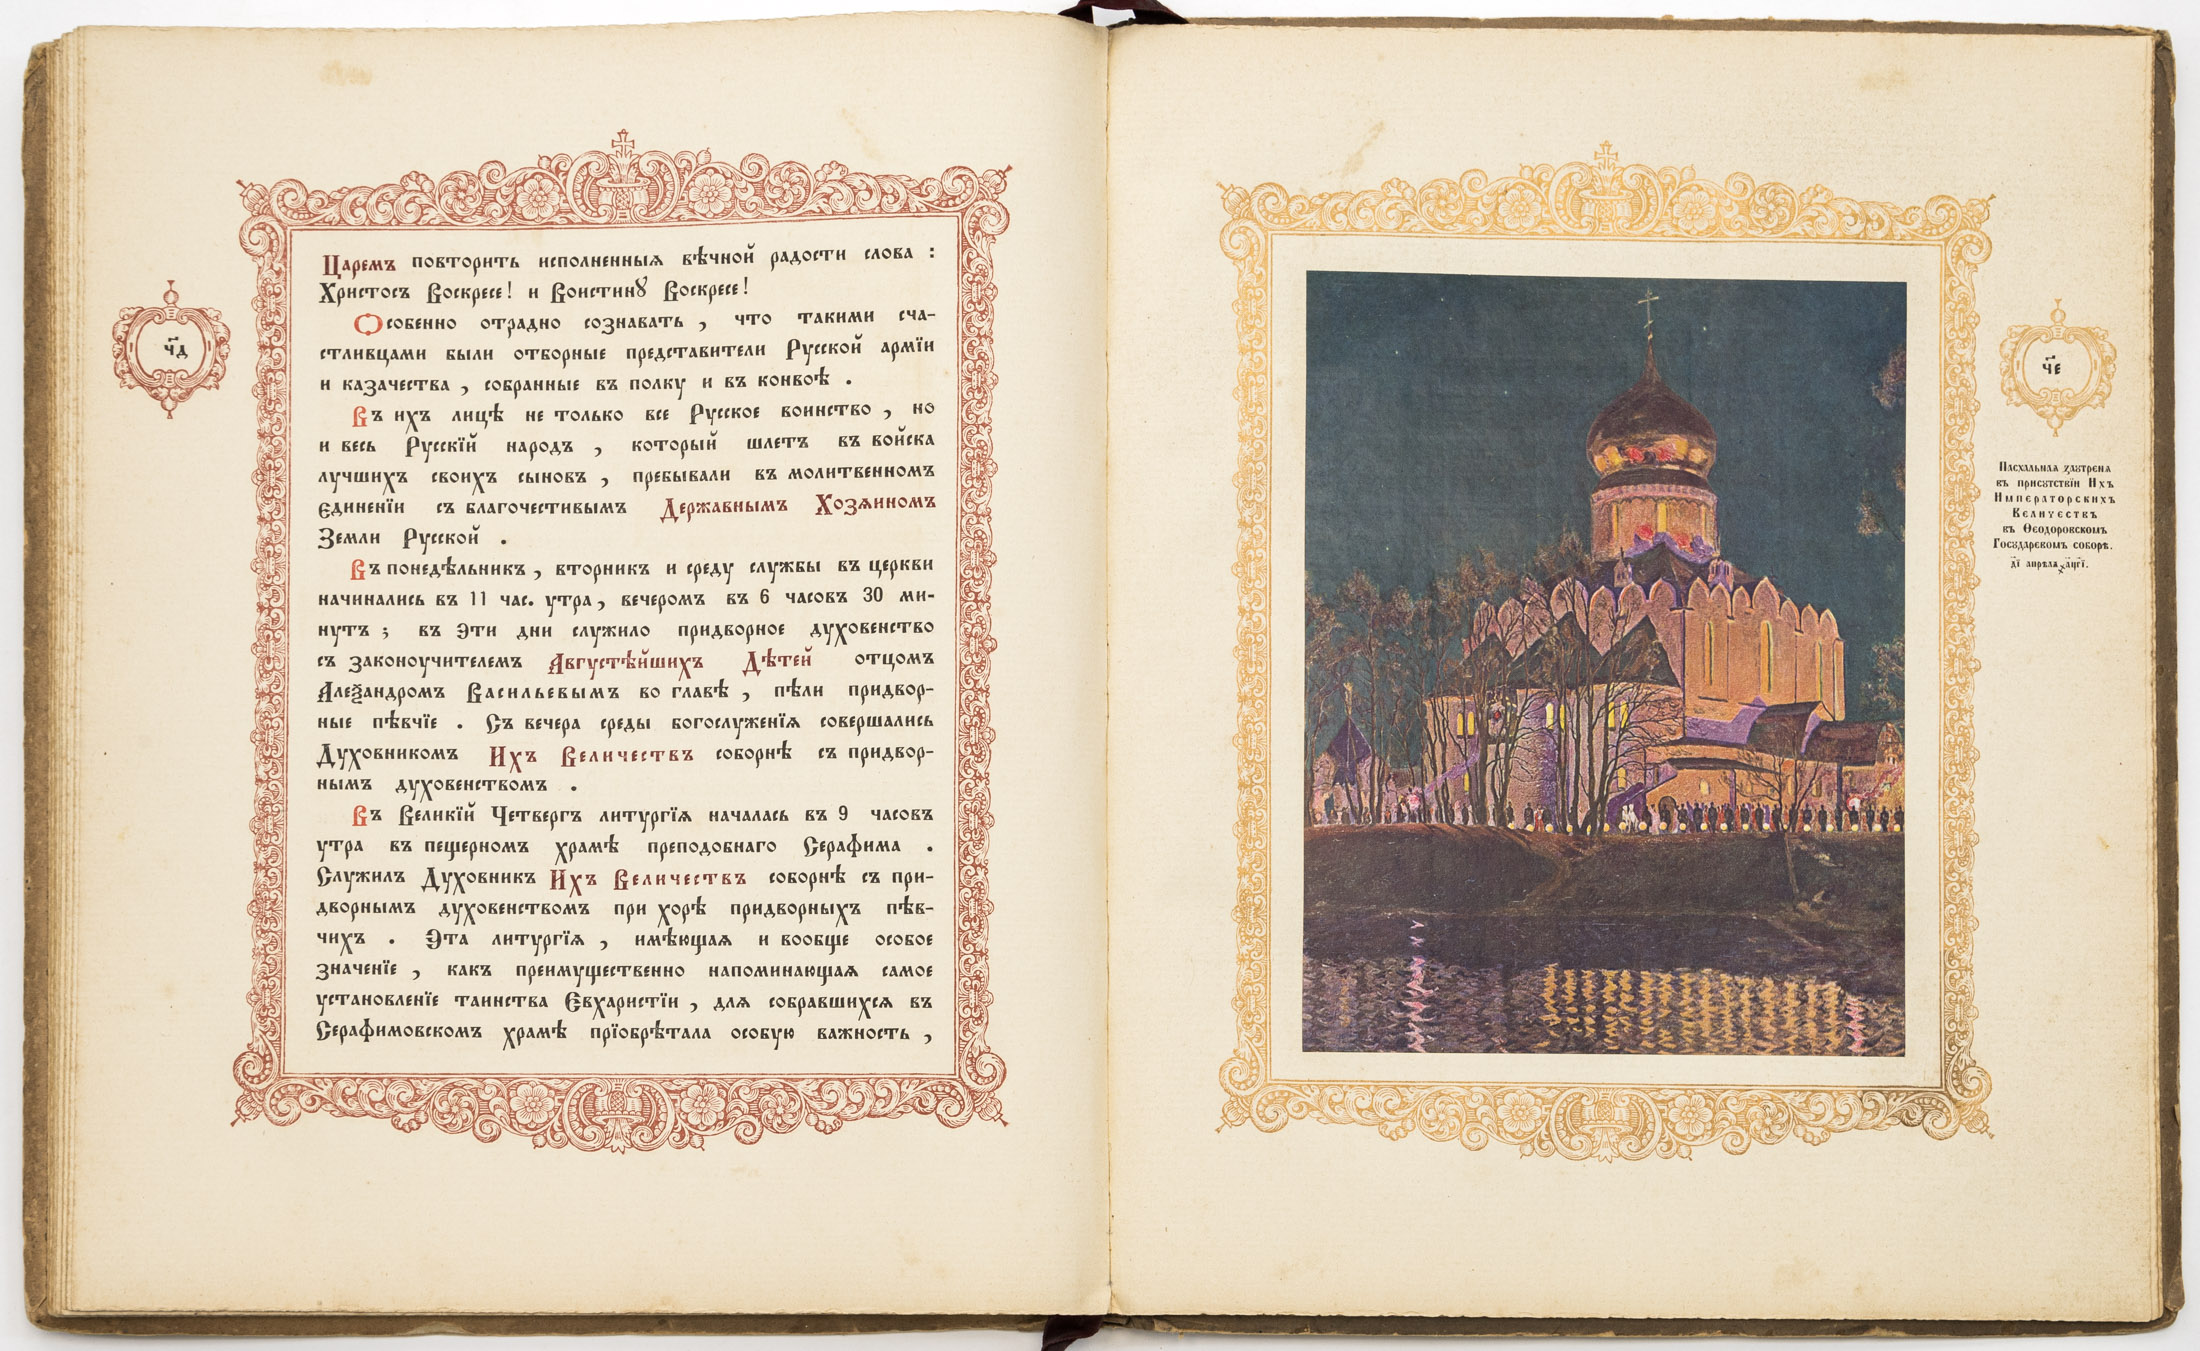 ч҃д
Царемъ повторить исполненныя вѣчной радости слова :
Христосъ Воскресе! и Воистинꙋ Воскресе!
Особенно отрадно сознавать , что такими сча-
стливцами были отборные представители Русской арміи
и казачества , собранные въ полку и въ конвоѣ .
Въ ихъ лицѣ не только все Русское воинство , но
и весь Русскій народъ , который шлетъ въ войска
лучшихъ своихъ сыновъ , пребывали въ молитвенномъ
единеніи съ благочестивымъ Державнымъ Хозяиномъ
Земли Русской .
Въ понедѣльникъ , вторникъ и среду службы въ церкви
начинались въ 11 час. утра , вечеромъ въ 6 часовъ 30 ми-
нутъ ; въ эти дни служило придворное духовенство
съ законоучителемъ Августѣйшихъ Дѣтей отцомъ
Алеѯандромъ Васильевымъ во главѣ , пѣли придвор-
ные пѣвчіе . Съ вечера среды богослуженія совершались
Духовникомъ Ихъ Величествъ соборнѣ съ придвор-
нымъ духовенствомъ .
Въ Великій Четвергъ литургія началась въ 9 часовъ
утра въ пещерномъ храмѣ преподобнаго Серафима .
Служилъ Духовникъ Ихъ Величествъ соборнѣ съ при-
дворнымъ духовенствомъ при хорѣ придворныхъ пѣв-
чихъ . Эта литургія , имѣющая и вообще особое
значеніе , какъ преимущественно напоминающая самое
установленіе таинства Евхаристіи , для собравшихся въ
Серафимовскомъ храмѣ пріобрѣтала особую важность ,
ч҃е
Пасхальная заутреня
въ присꙋтствіи Ихъ
Императорскихъ
Величествъ
въ Ѳеодоровскомъ
Государевомъ соборѣ.
д҃і апрѣла ҂ацг҃і.